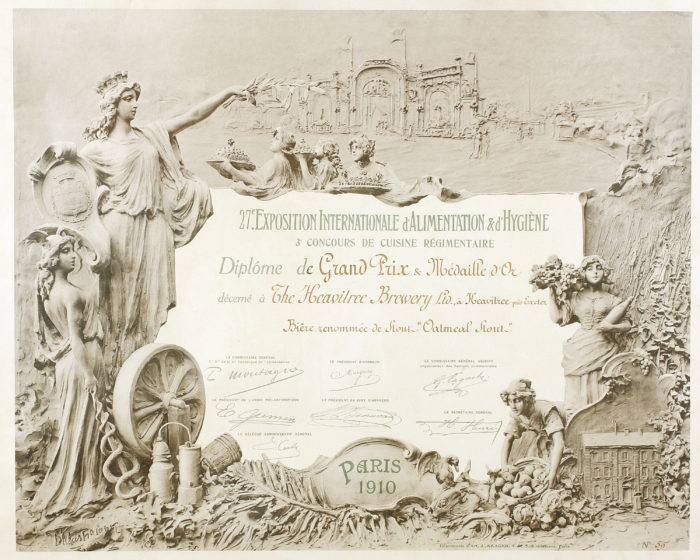 27e EXPOSITION INTERNATIONALE d'ALIMENTATION & d'HYGIÈNE
3e CONCOURS DE CUISINE RÉGIMENTAIRE
Diplôme de Grand Prix & Médaille d'Or
décerné à The Heavitree Brewery Ltd., à Heavitree près Exeter
Bière renommée de Stout "Oatmeal Stout"
LE COMMISSAIRE GÉNÉRAL
LE PRÉSIDENT D'HONNEUR
LE COMMISSAIRE GÉNÉRAL ADJOINT
P. Montagné
LE PRÉSIDENT DE L'UNION PHILANTHROPIQUE
LE PRÉSIDENT DU JURY D'HONNEUR
LE SECRÉTAIRE GÉNÉRAL
LE DÉLÉGUÉ ADMINISTRATIF GÉNÉRAL
PARIS
1910